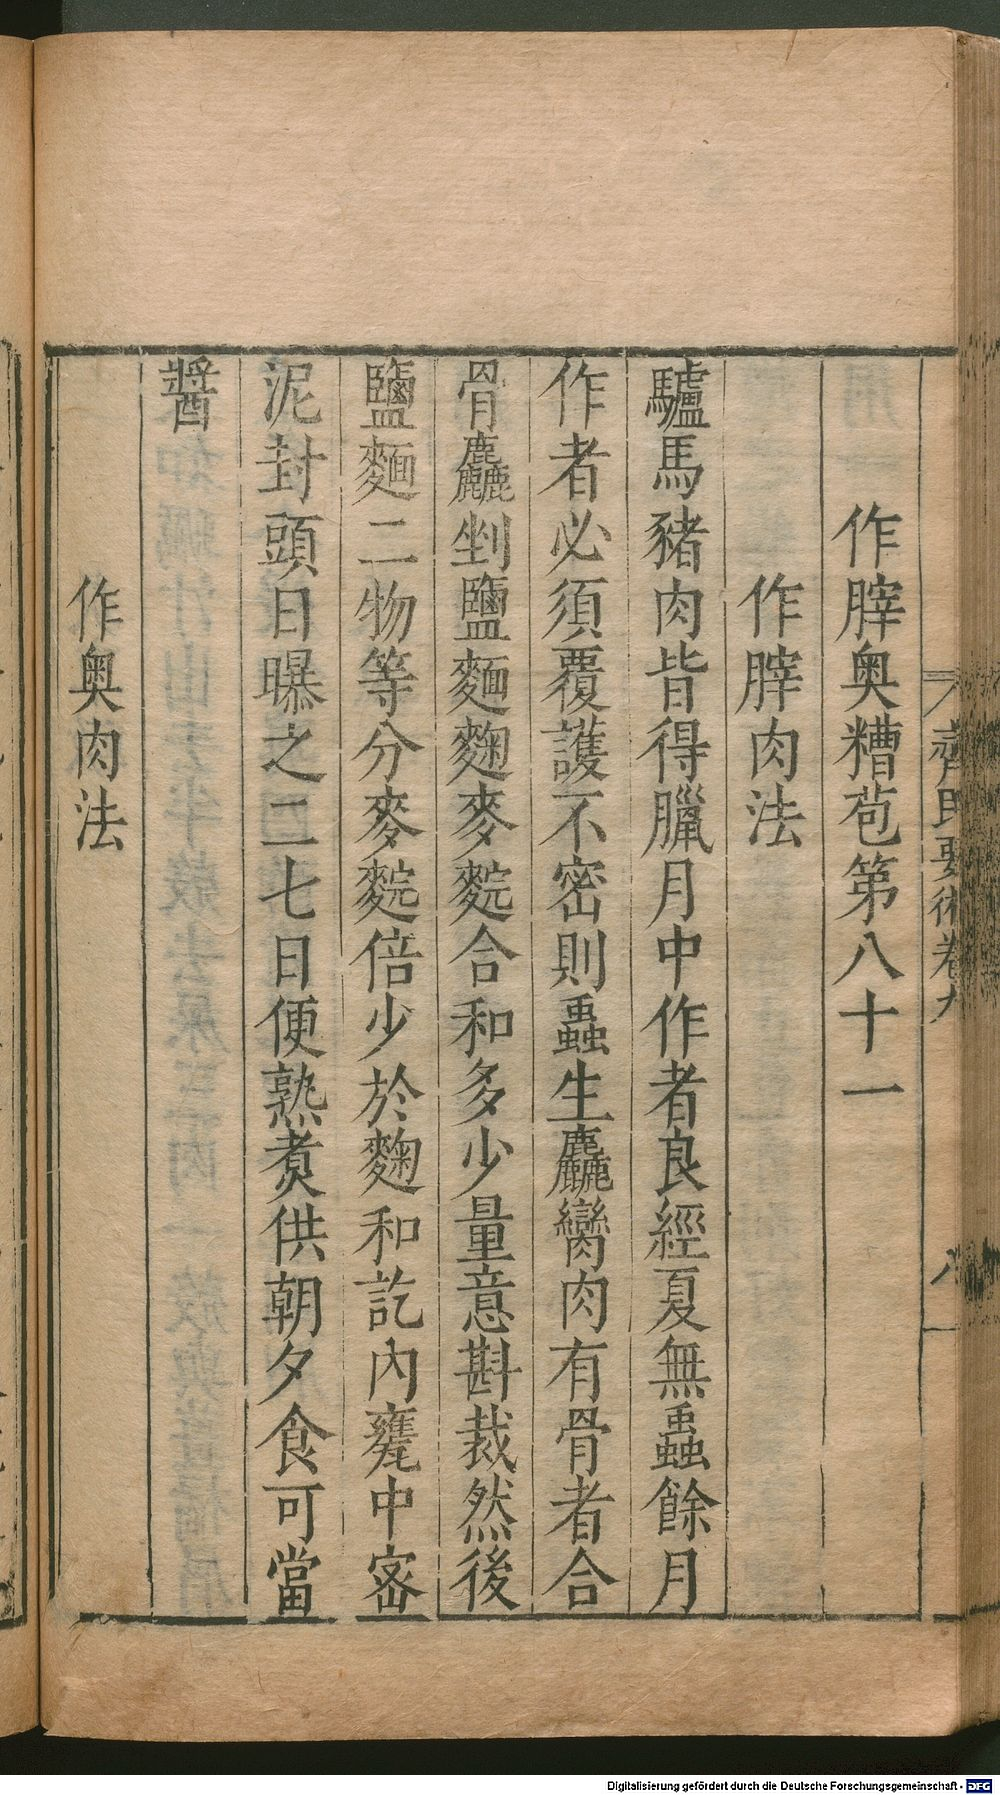 作脺奥糟苞第八十一
作脺肉法
驢馬豬肉皆得臘月中作者良經夏無蟲餘月
作者必須覆護不密則蟲生麤臠肉有骨者合
骨麤剉鹽麵麴麥䴷合和多少量意斟裁然後
鹽麵二物等分麥䴷倍少於麴和訖內甕中密
泥封頭日曝之二七日便熟煑供朝夕食可當
醬
作奥肉法
齊民要術卷九
八
Digitalisierung gefördert durch die Deutsche Forschungsgemeinschaft - DFG